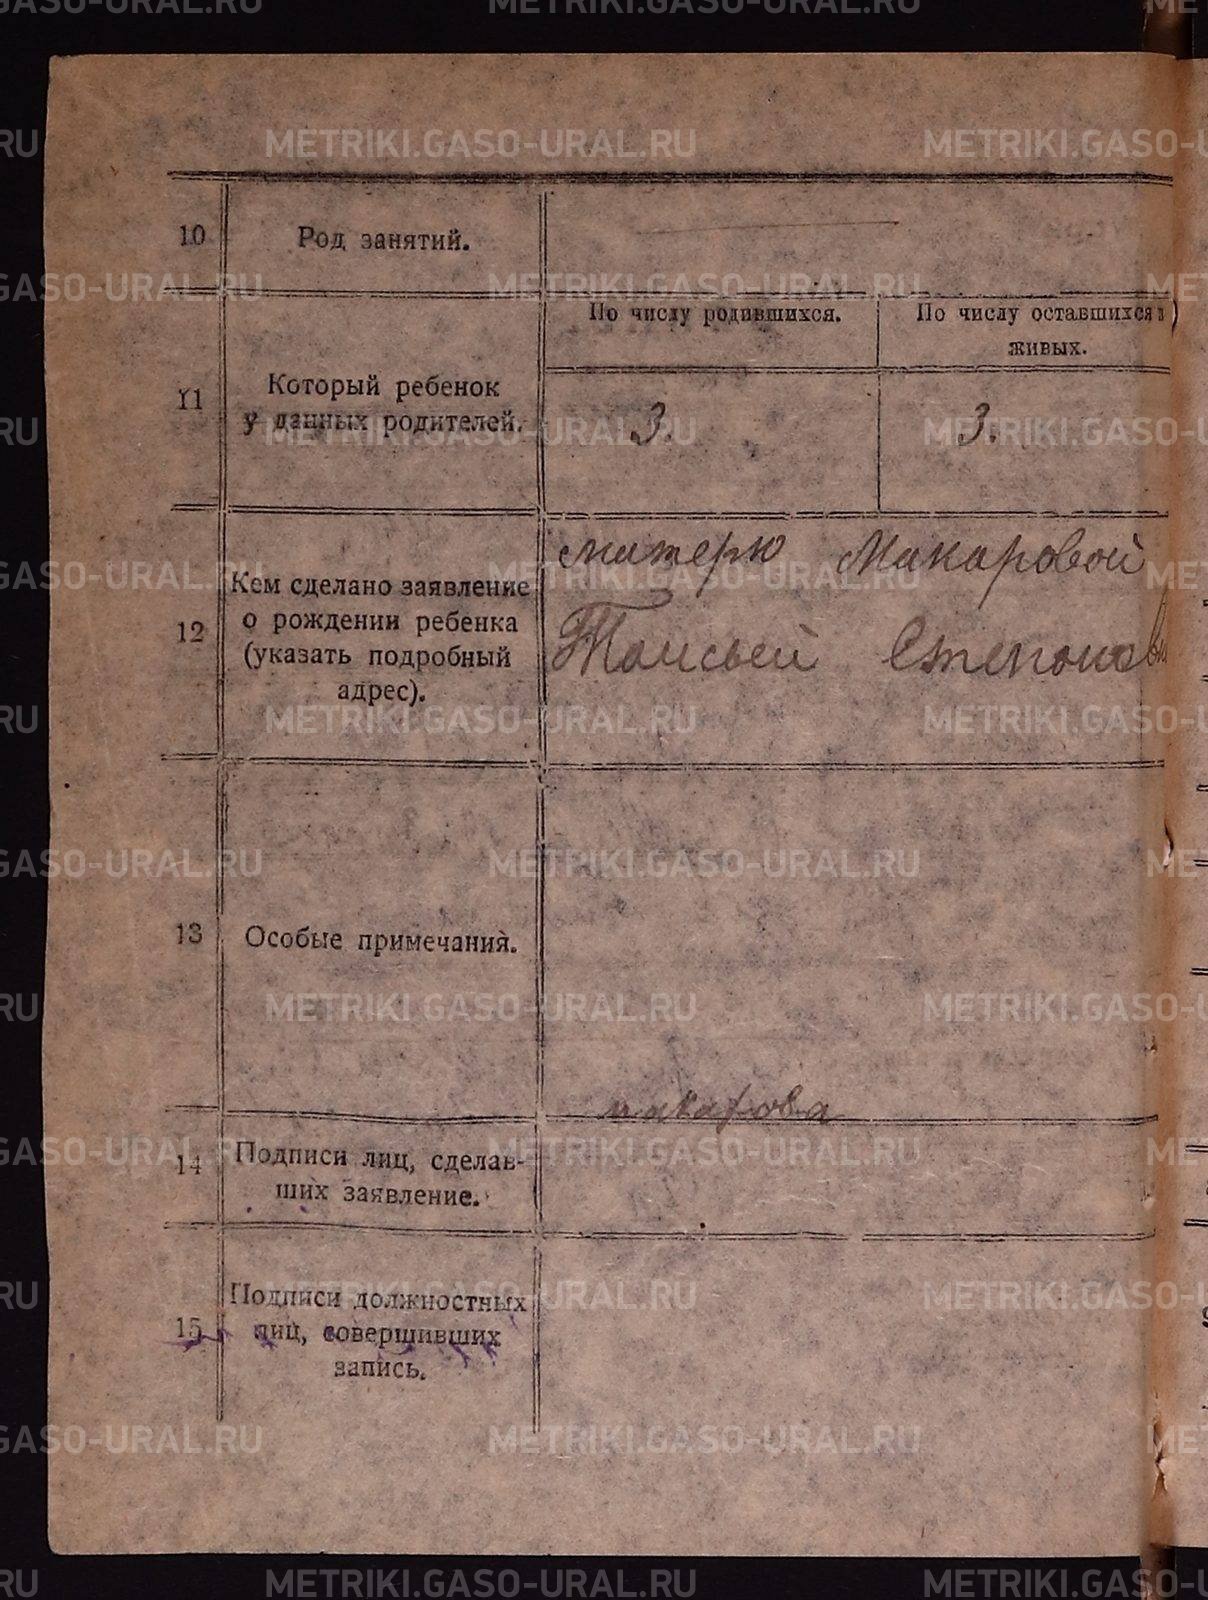 10
Род занятий.
По числу родившихся.
По числу оставшихся
живых.
11
Который ребенок
у данных родителей.
3.
3.
12
Кем сделано заявление
о рождении ребенка
(указать подробный
адрес).
матерю Макаровой
Таисьей
13
Особые примечания.
макарова
14
Подписи лиц, сделав-
ших заявление.
15
Подписи должностных
лиц, совершивших
запись.
METRIKI.GASO-URAL.RU